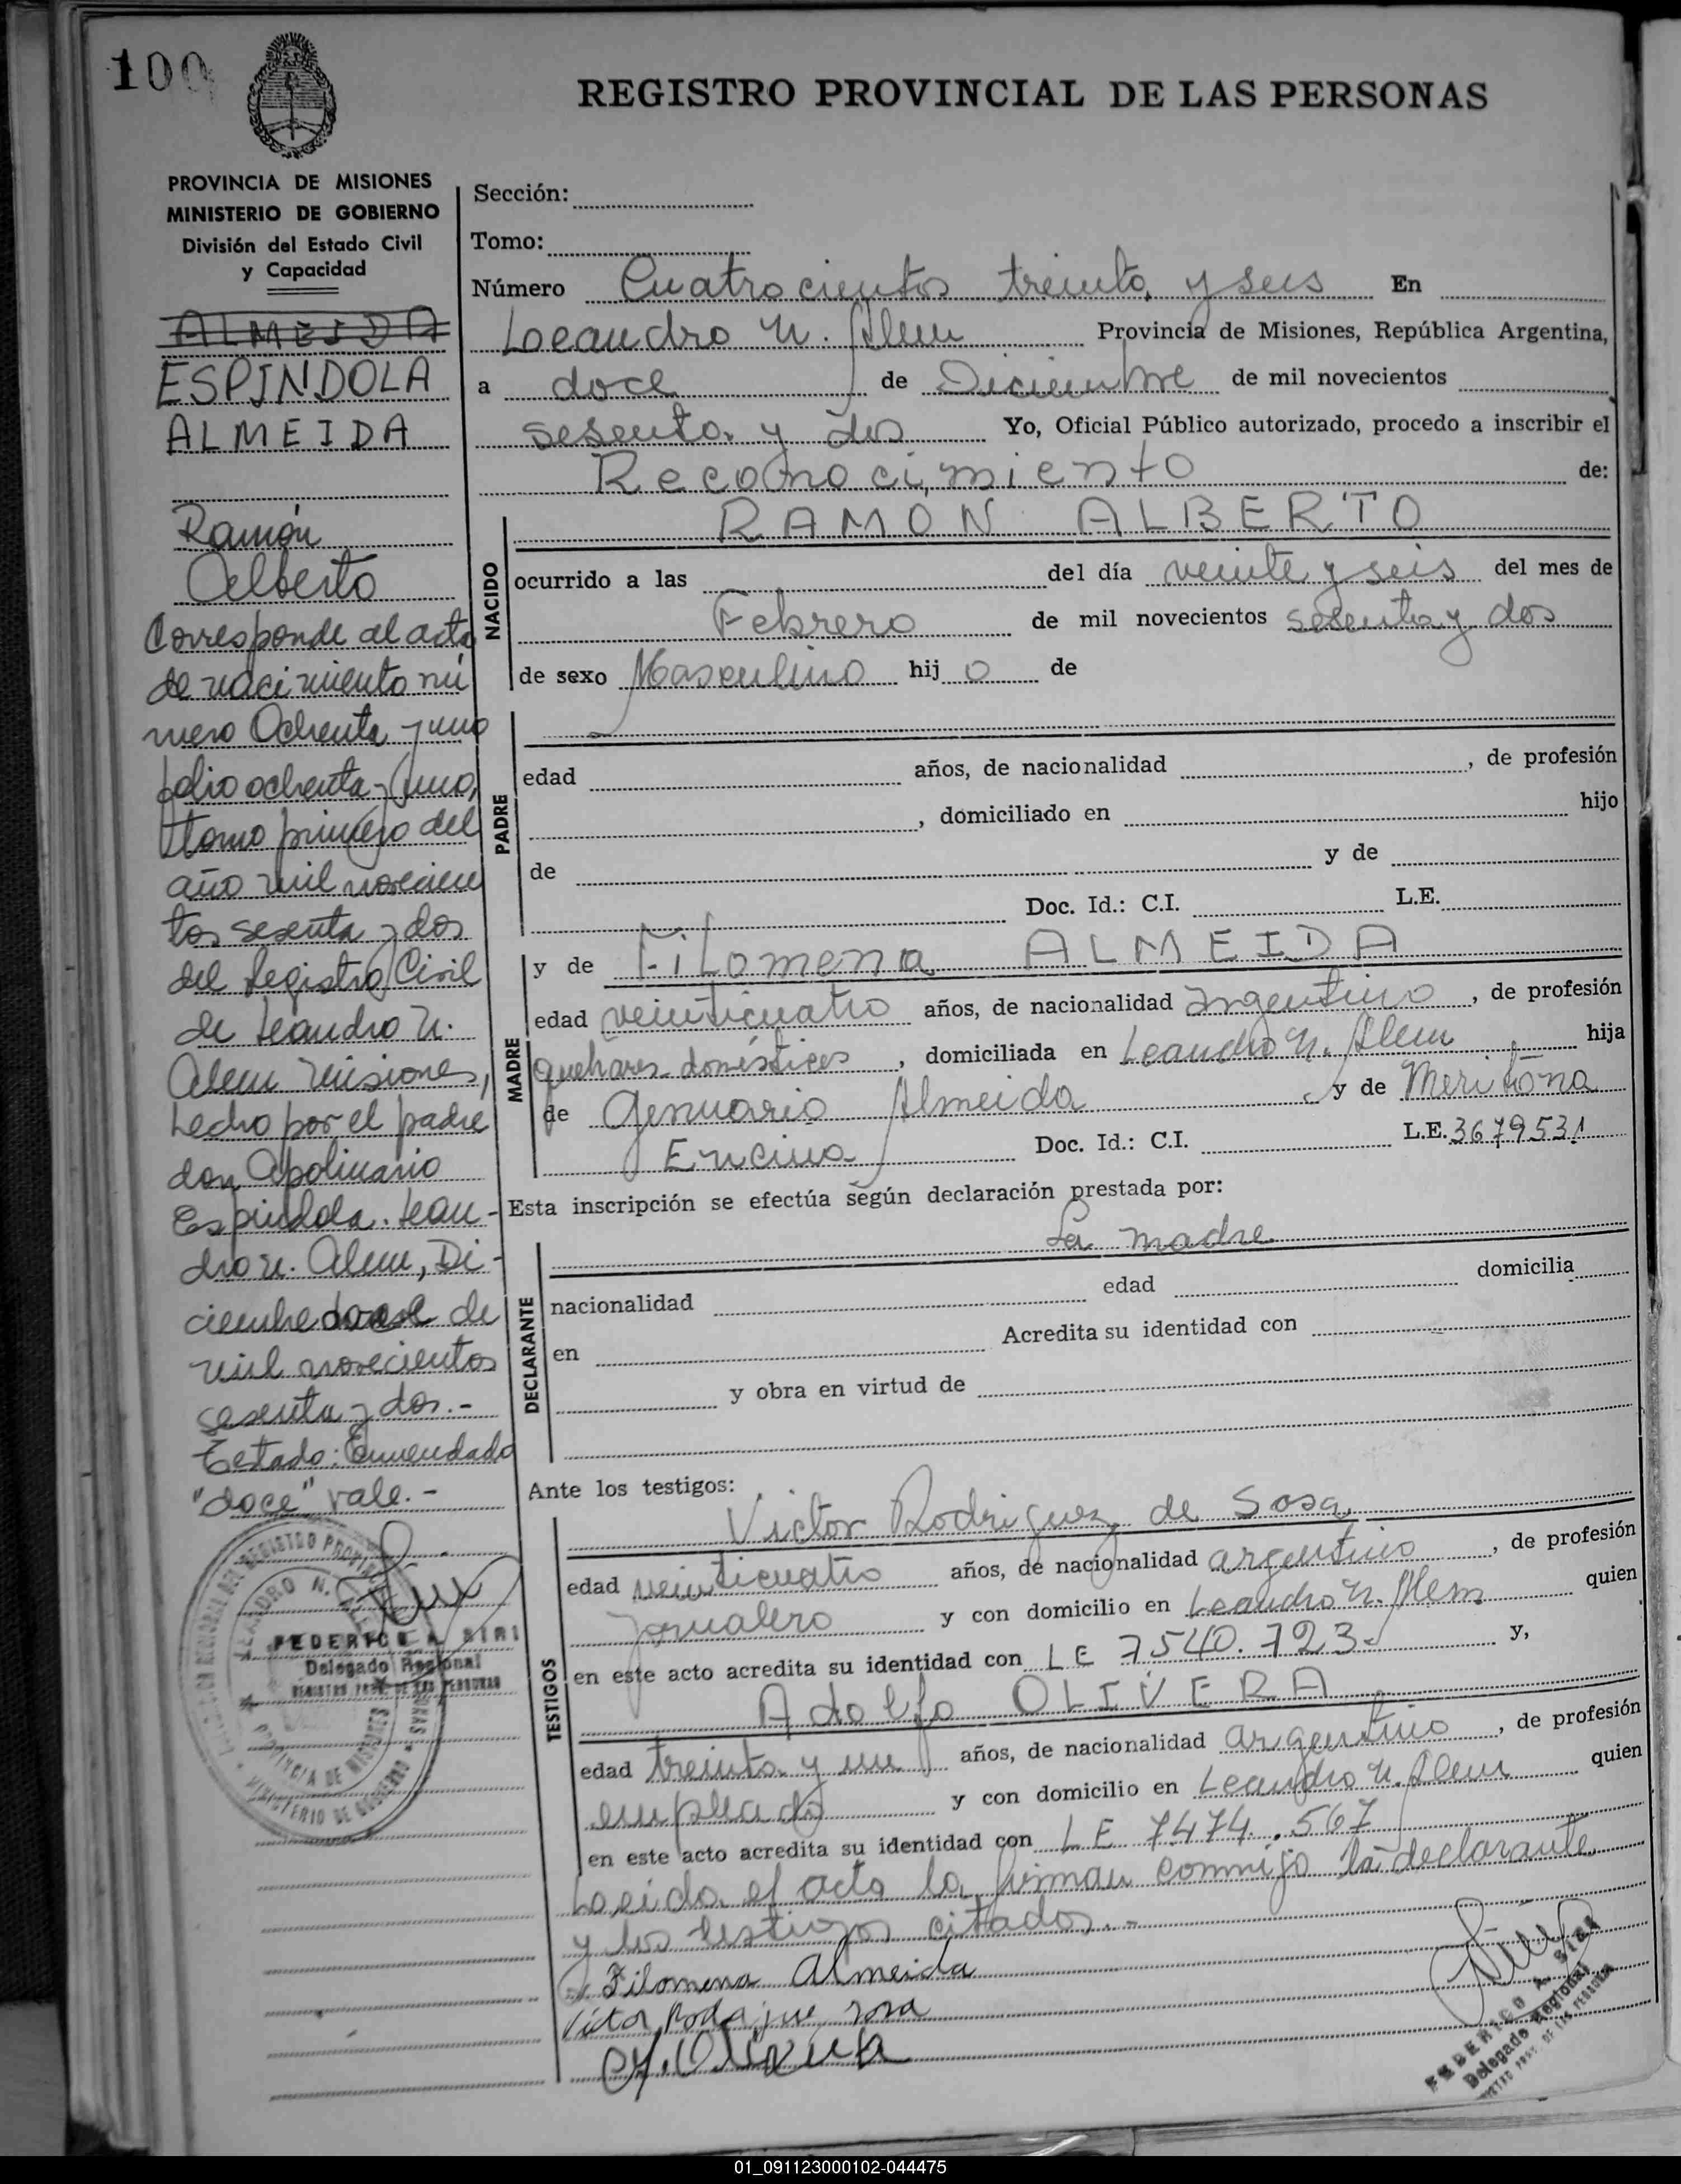 100
REGISTRO PROVINCIAL DE LAS PERSONAS
PROVINCIA DE MISIONES
MINISTERIO DE GOBIERNO
División del Estado Civil
y Capacidad
ALMEIDA
ESPINDOLA
ALMEIDA
Ramón
Alberto
Corresponde al acta
de nacimiento nú
mero Ochenta y uno
folio ochenta y uno,
tomo primero del
año mil novecien
tos sesenta y dos
del Registro Civil
de Leandro N.
Alem Misiones,
hecho por el padre
don Apolinario
Espindola. Lean-
dro N. Alem, Di-
ciembre doce de
mil novecientos
sesenta y dos.-
Testado: Enmendado
"doce" vale.-
FEDERICO A. SIRI
Delegado Regional
REGISTRO PROV. DE LAS PERSONAS
LEANDRO N.
PROVINCIA DE MISIONES
MINISTERIO DE GOBIERNO
Sección:
Tomo:
Número Cuatrocientos treinta y seis En
Leandro N. Alem Provincia de Misiones, República Argentina,
a doce de Diciembre de mil novecientos
sesenta y dos Yo, Oficial Público autorizado, procedo a inscribir el
Reconocimiento de:
NACIDO
RAMON ALBERTO
ocurrido a las del día veinte y seis del mes de
Febrero de mil novecientos sesenta y dos
de sexo Masculino hij o de
PADRE
edad años, de nacionalidad , de profesión
, domiciliado en hijo
de y de
Doc. Id.: C.I. L.E.
MADRE
y de Filomena ALMEIDA
edad veinticuatro años, de nacionalidad argentino, de profesión
quehares domésticos, domiciliada en Leandro N. Alem, hija
de Genuario Almeida y de Meritona
Encina Doc. Id.: C.I. L.E. 3679531
Esta inscripción se efectúa según declaración prestada por:
La madre
DECLARANTE
nacionalidad edad domicilia
en Acredita su identidad con
y obra en virtud de
Ante los testigos:
TESTIGOS
Victor Rodriguez de Sosa
edad veinticuatro años, de nacionalidad argentino, de profesión
jornalero y con domicilio en Leandro N. Alem quien
en este acto acredita su identidad con LE 7540.723- y,
Adolfo OLIVERA
edad treinta y un años, de nacionalidad argentino, de profesión
empleado y con domicilio en Leandro N. Alem quien
en este acto acredita su identidad con LE 7474.567
Leida el acta la firman conmigo la declarante
y los testigos citados.-
Filomena Almeida
Victor Rodrigue sosa
A. Olivera
FEDERICO A. SIRI
Delegado Regional
REGISTRO PROV. DE LAS PERSONAS
01_091123000102-044475